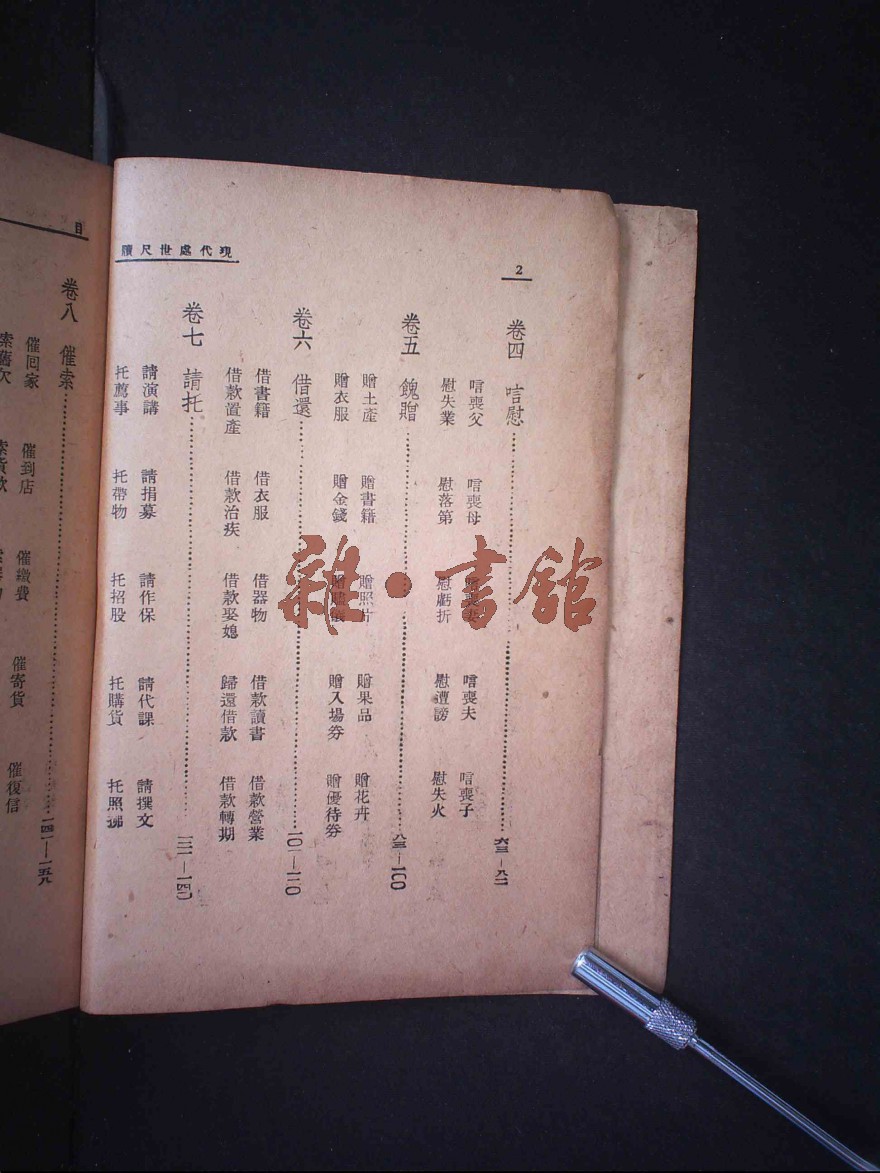 現代處世尺牘
2
卷四 唁慰……六三—八二
唁喪父 唁喪母 唁喪夫 唁喪子
慰失業 慰落第 慰虧折 慰遭謗 慰失火
卷五 餽贈……八三—一〇〇
贈土產 贈書籍 贈照片 贈果品 贈花卉
贈衣服 贈金錢 贈入場券 贈優待券
卷六 借還……一〇一—一二〇
借書籍 借衣服 借器物 借款讀書 借款營業
借款置產 借款治疾 借款娶媳 歸還借款 借款轉期
卷七 請托……一二一—一四〇
請演講 請捐募 請作保 請代課 請撰文
托薦事 托帶物 托招股 托購貨 托照拂
目
卷八 催索……一四一—一五八
催回家 催到店 催繳費 催寄貨 催復信
索舊欠 索貨款
雜·書館